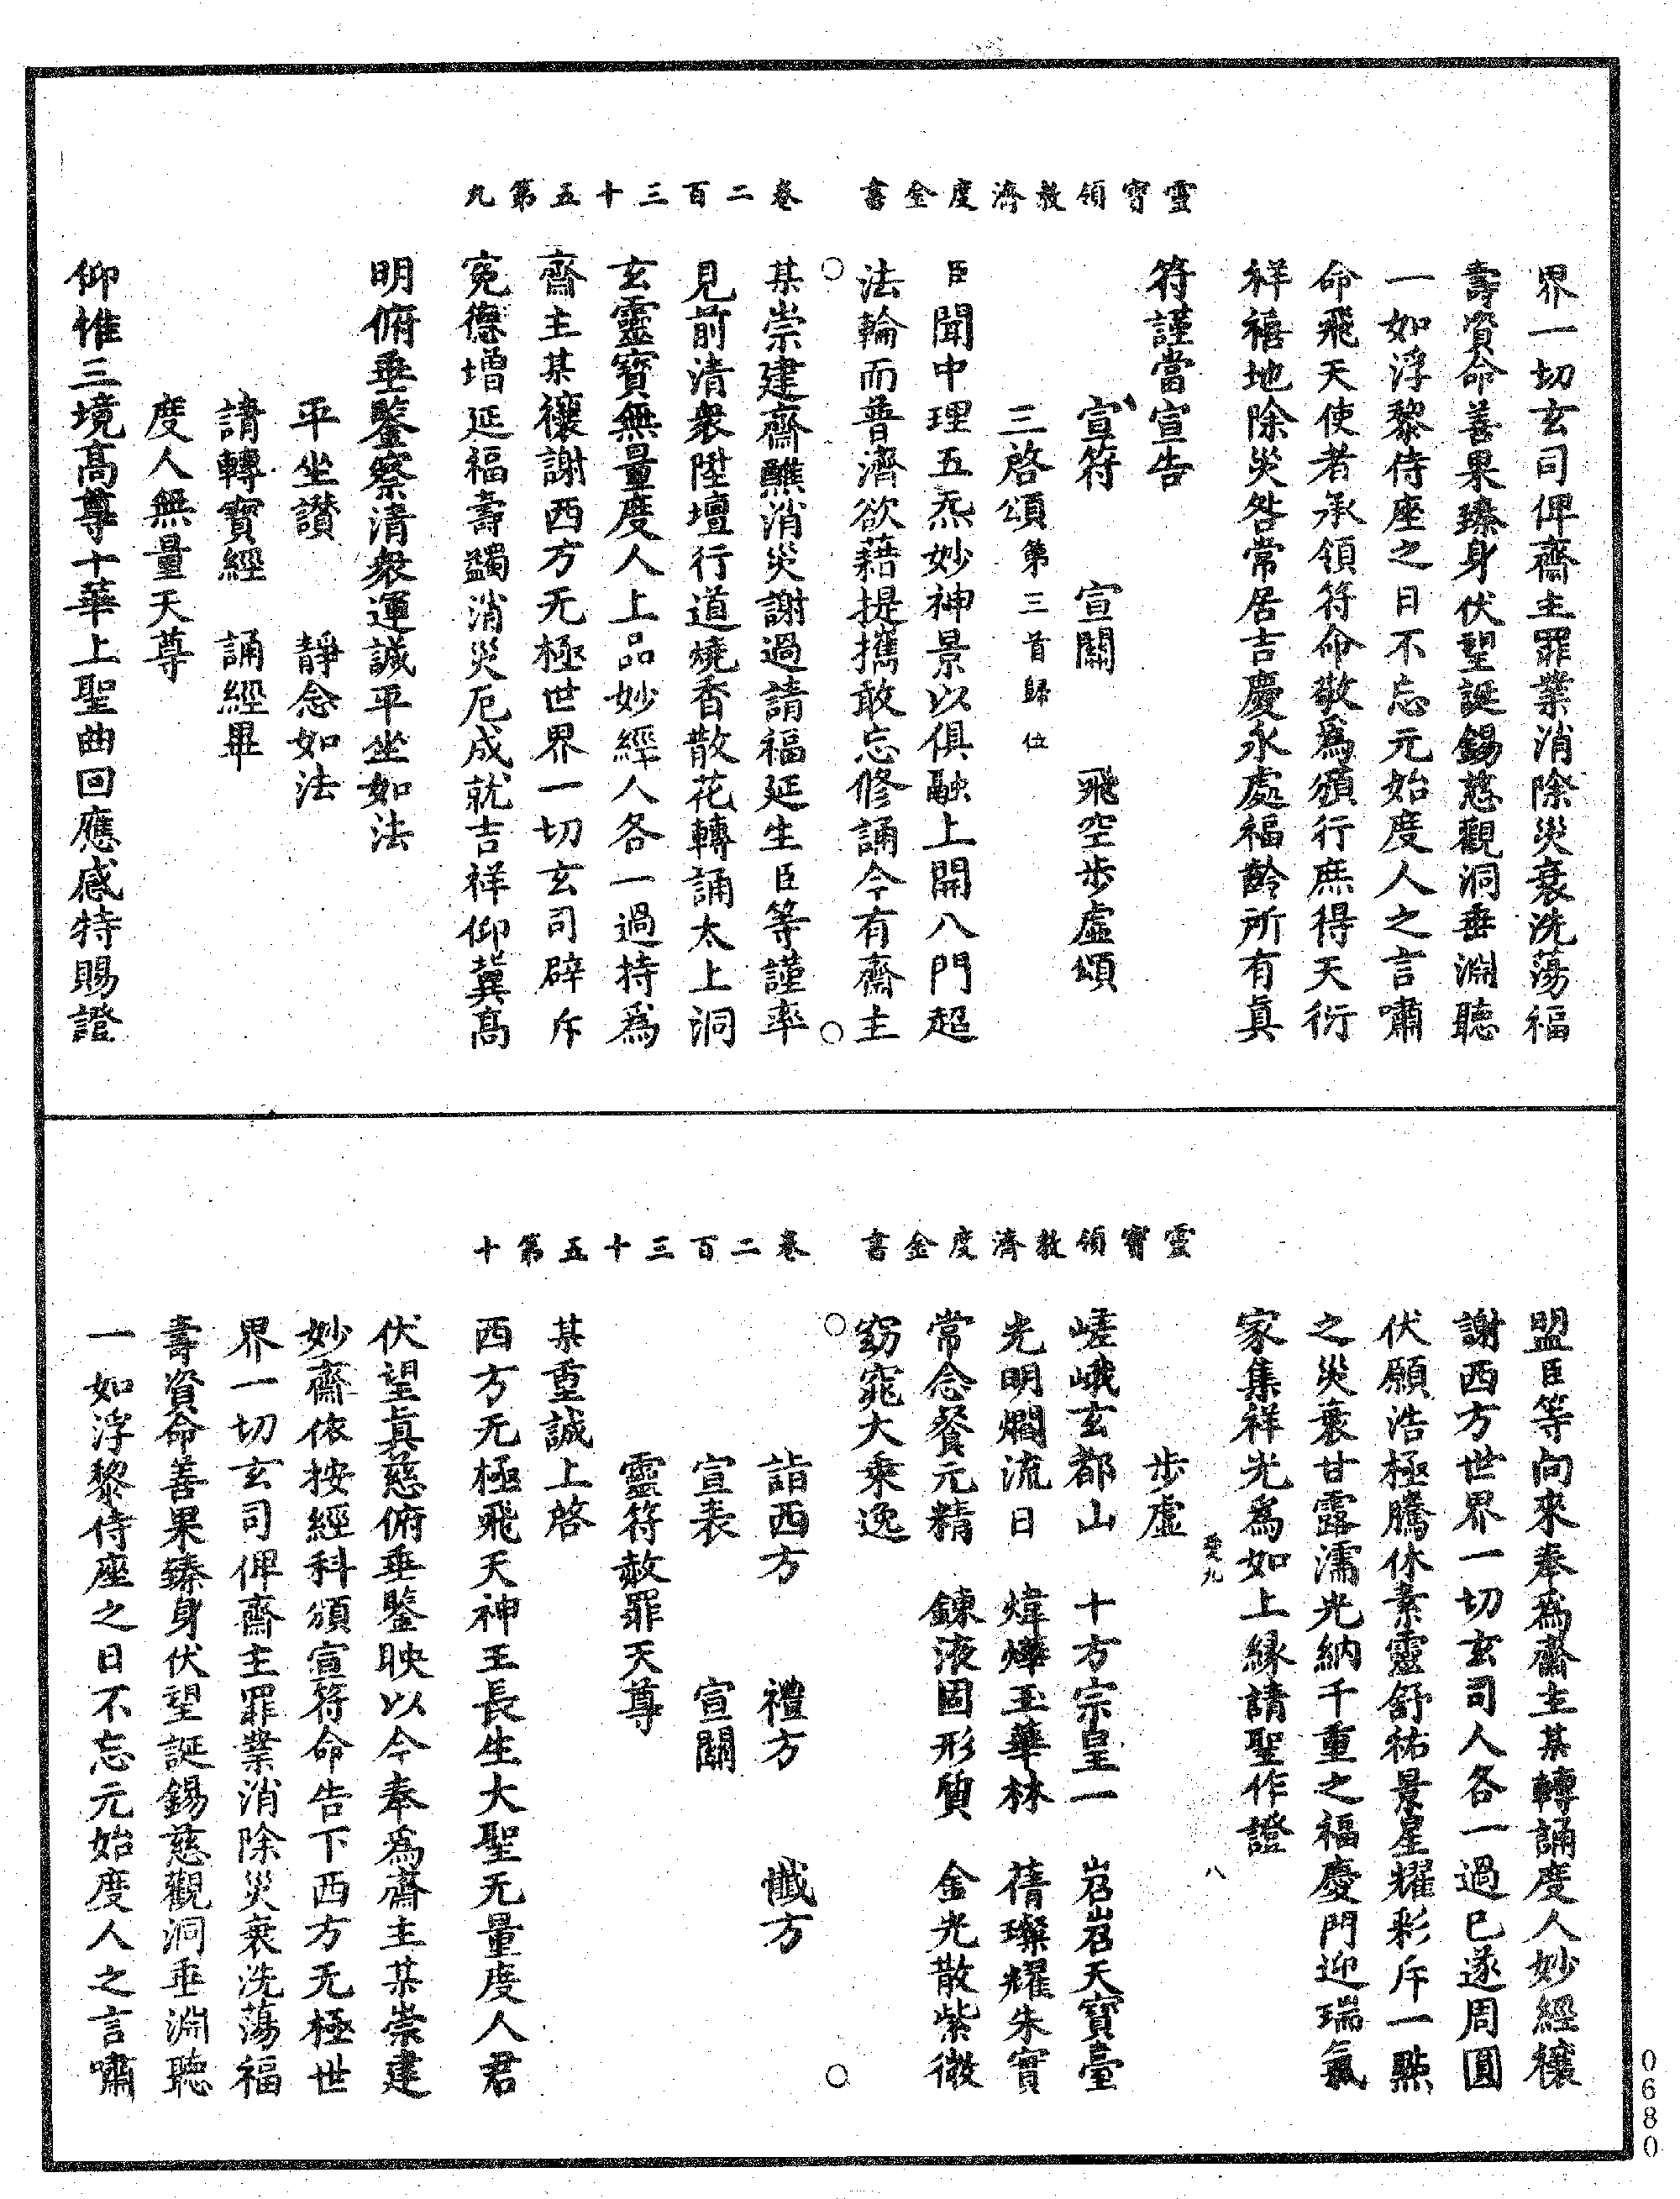 靈寶領教濟度金書　卷二百三十五第九
界一切玄司俾齋主罪業消除災衰洗蕩福
壽資命善果臻身伏望誕錫慈觀洞垂淵聽
一如浮黎侍座之日不忘元始度人之言嘯
命飛天使者承領符命敬爲頒行庶得天衍
祥禧地除災咎常居吉慶永處福齡所有真
符謹當宣告
宣符　宣關　飛空步虛頌
三啓頌第三首歸位
臣聞中理五炁妙神景以俱融上開八門超
法輪而普濟欲藉提攜敢忘修誦今有齋主
某崇建齋醮消災謝過請福延生臣等謹率
見前清衆陞壇行道燒香散花轉誦太上洞
玄靈寶無量度人上品妙經人各一過持爲
齋主某禳謝西方无極世界一切玄司辟斥
寃德增延福壽蠲消災厄成就吉祥仰冀高
明俯垂鑒察清衆運誠平坐如法
平坐讃　靜念如法
請轉寶經　誦經畢
度人無量天尊
仰惟三境高尊十華上聖曲回應感特賜證
靈寶領教濟度金書　卷二百三十五第十
盟臣等向來奉爲齋主某轉誦度人妙經禳
謝西方世界一切玄司人各一過已遂周圓
伏願浩極騰休素靈舒祐景星耀彩斥一點
之災衰甘露濡光納千重之福慶門迎瑞氣
家集祥光爲如上緣請聖作證
八
步虛
嵯峨玄都山　十方宗皇一　岧岧天寶臺
光明爓流日　煒燁玉華林　蒨璨耀朱實
常念餐元精　鍊液固形質　金光散紫微
窈窕大乘逸
詣西方　禮方　懺方
宣表　宣關
靈符赦罪天尊
某重誠上啓
西方无極飛天神王長生大聖无量度人君
伏望真慈俯垂鑒映以今奉爲齋主某崇建
妙齋依按經科頒宣符命告下西方无極世
界一切玄司俾齋主罪業消除災衰洗蕩福
壽資命善果臻身伏望誕錫慈觀洞垂淵聽
一如浮黎侍座之日不忘元始度人之言嘯
0680